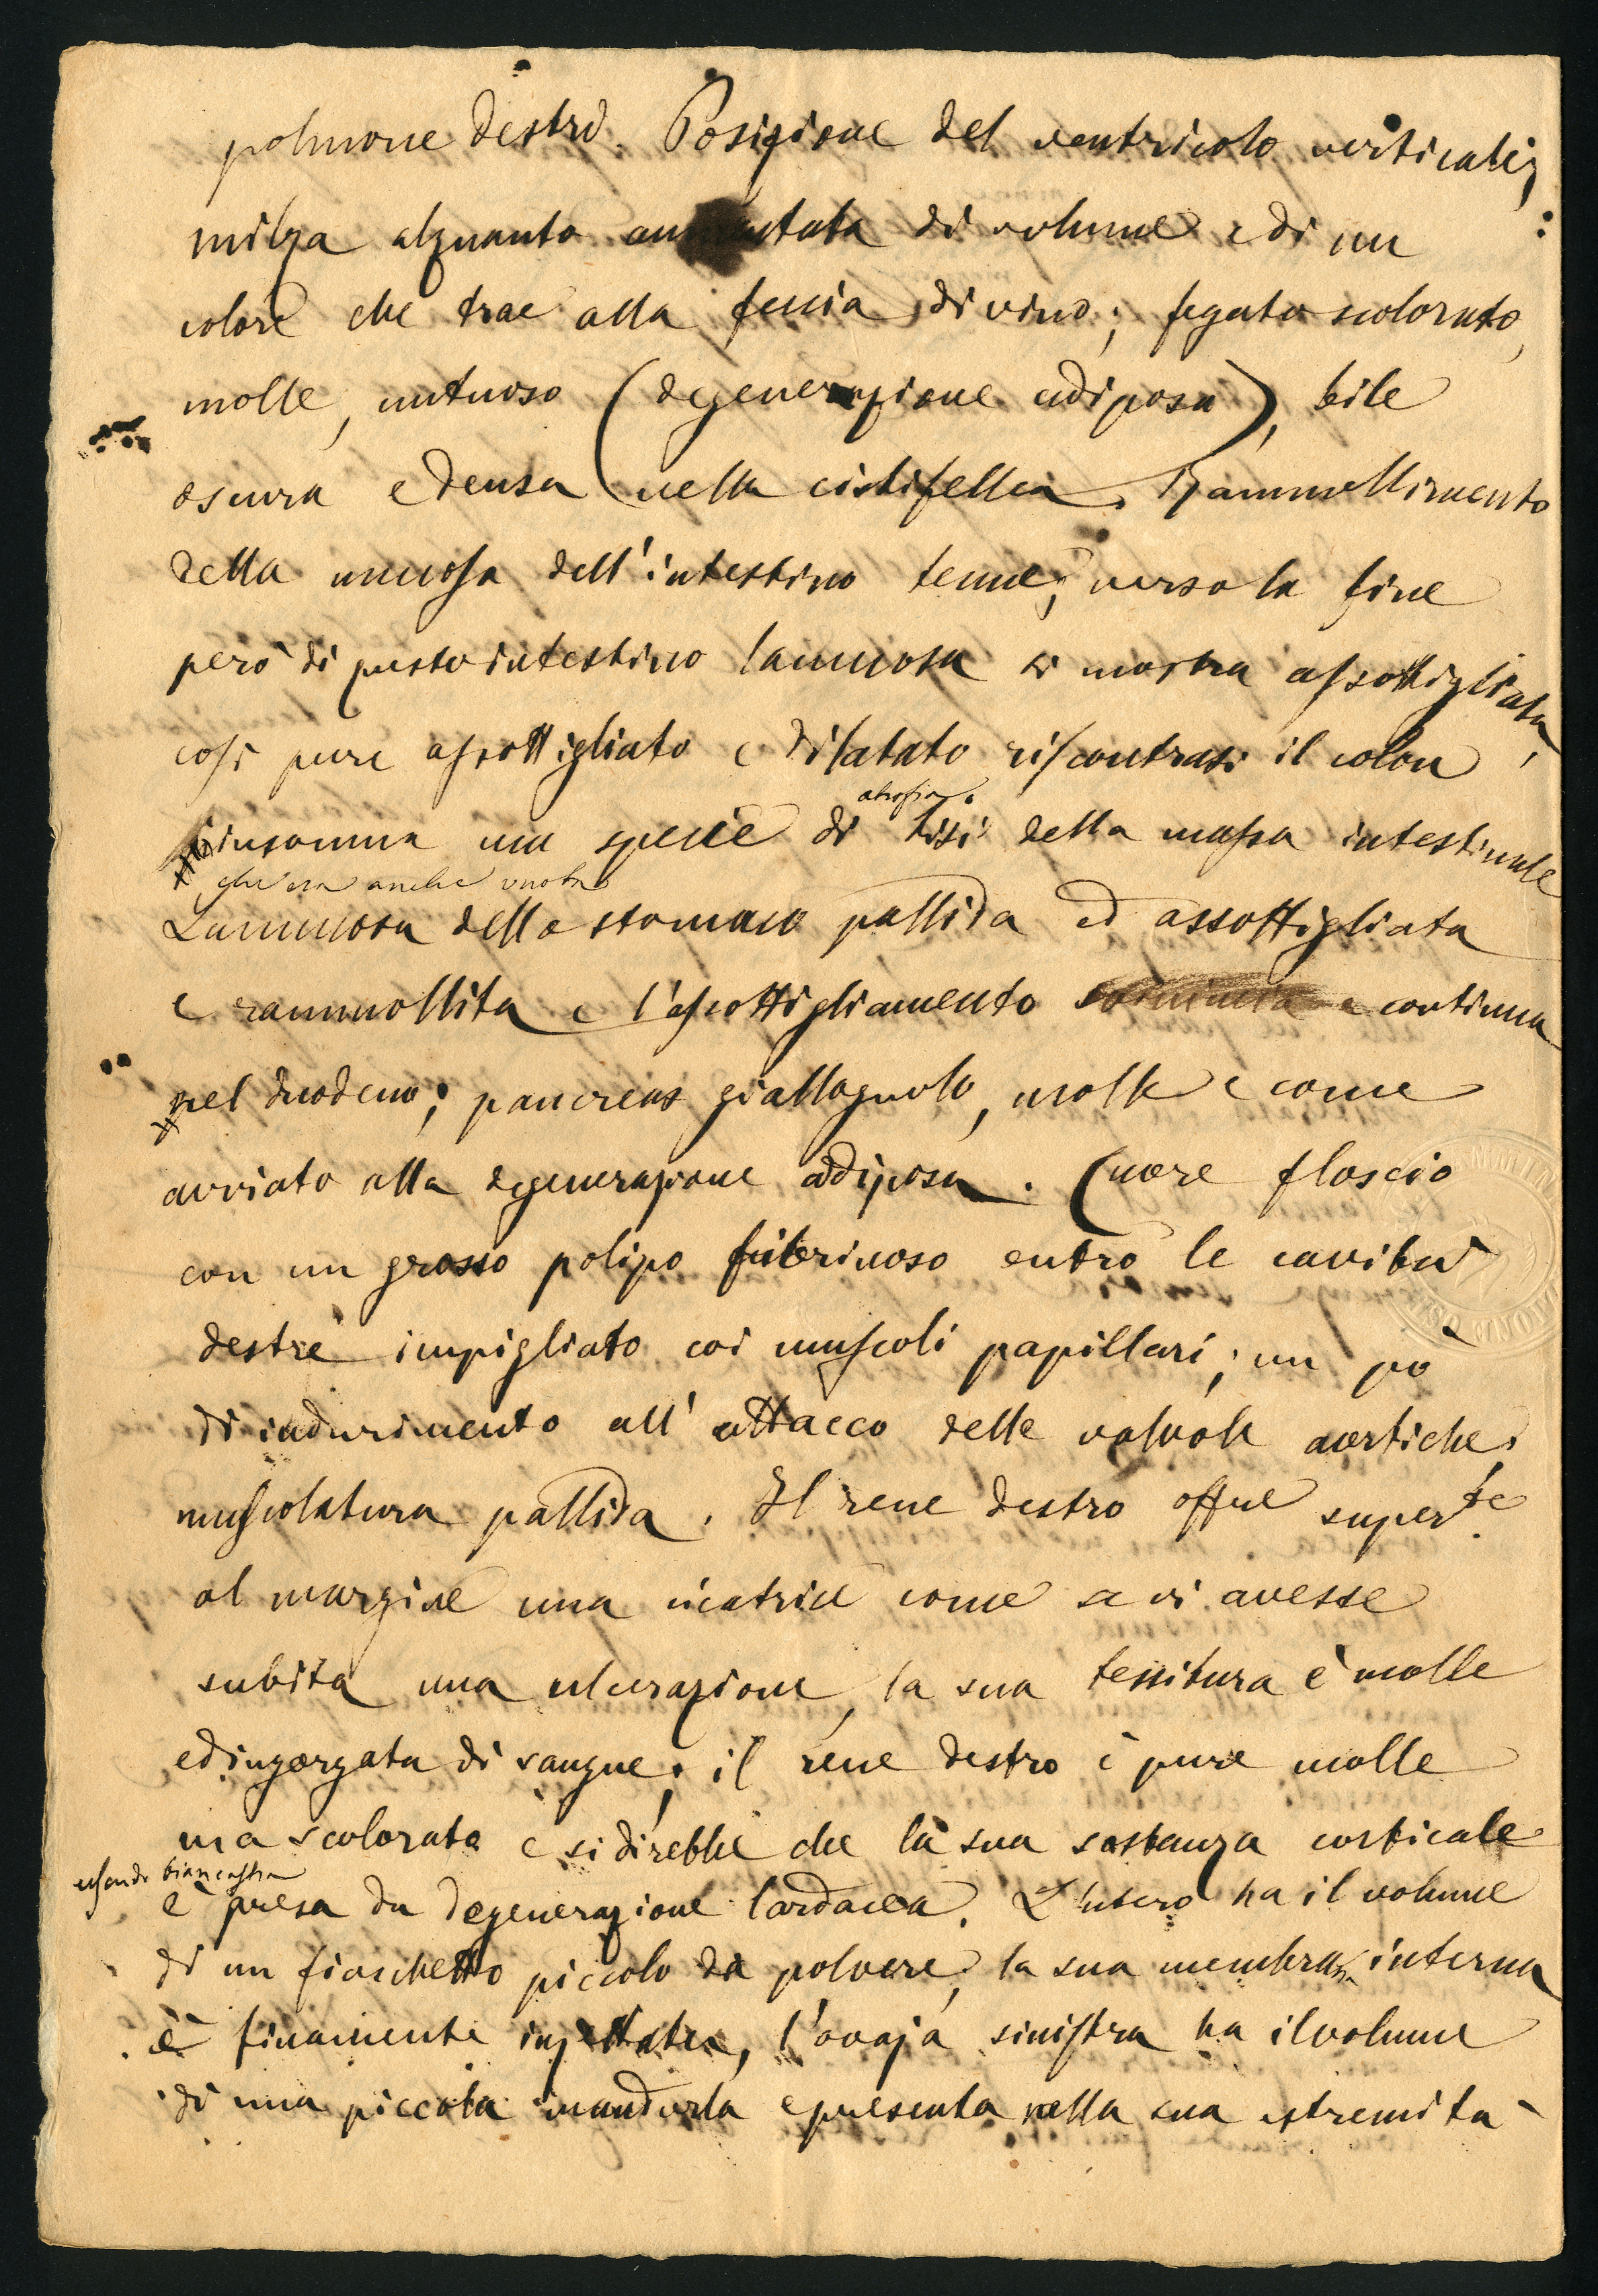 polmone destro. Posizione del ventricolo verticale;
milza alquanto aumentata di volume e di un
colore che trae alla feccia di vino; fegato scolorato,
molle, untuoso (degenerazione adiposa), bile
oscura e densa nella cistifellea. Rammollimento
della mucosa dell'intestino tenue; verso la fine
però di questo intestino la mucosa si mostra assottigliata,
così pure assottigliato e dilatato riscontrasi il colon
insomma una specie di tisi della massa intestinale
atrofia
che era anche vuota
La mucosa dello stomaco pallida ed assottigliata
e rammollita e l'assottigliamento comincia e continua
nel duodeno; pancreas giallognolo, molle e come
avviato alla degenerazione adiposa. Cuore floscio
con un grosso polipo fibrinoso entro le cavità
destre impigliato coi muscoli papillari; un pò
di indurimento all'attacco delle valvole aortiche,
muscolatura pallida. Il rene destro offre super.te
al margine una cicatrice come se vi avesse
subita una ulcerazione, la sua tessitura è molle
ed ingorgata di sangue; il rene destro è pure molle
ma scolorato e si direbbe che la sua sostanza corticale
essendo biancastra
è presa da degenerazione lardacea. L'utero ha il volume
di un fiaschetto piccolo da polvere, la sua membrana interna
è finamente injettata, l'ovaja sinistra ha il volume
di una piccola mandorla e presenta nella sua estremità